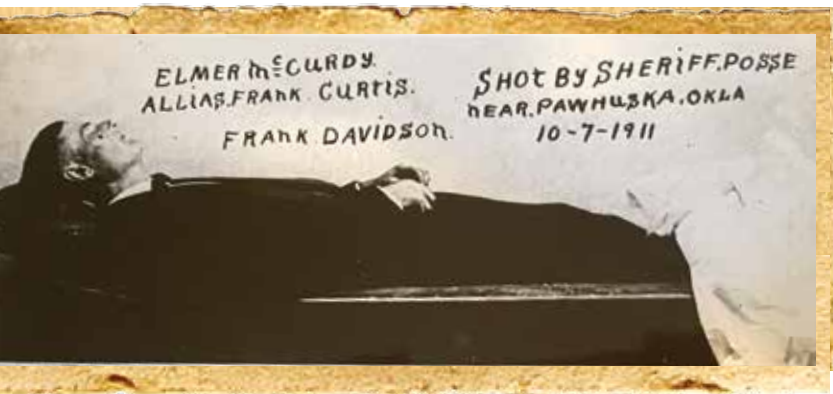 ELMER McCURDY.
ALLIAS.FRANK CURTIS.
FRANK DAVIDSON.
SHOT BY SHERIFF.POSSE
NEAR.PAWHUSKA.OKLA
10-7-1911